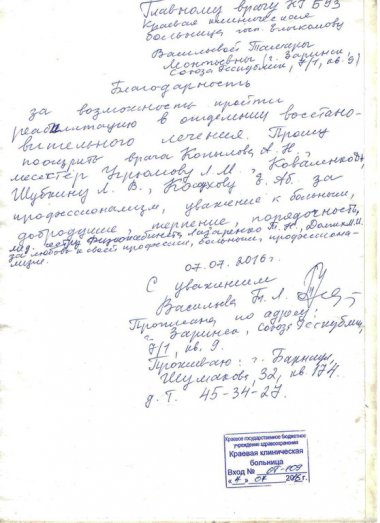 Главному врачу КГБУЗ
Краевая клиническая
больница
Васильевой Тамары
(г. Заринск,
Союза Республик, 7/1, кв. 9)
Благодарность
за возможность пройти
реабилитацию в отделении восстано-
вительного лечения. Прошу
поощрить врача Копылова А. Н.,
Угрюмову Л. М., Коваленко
Шубкину Л. В., за
профессионализм, уважение к больным,
добродушие, терпение, порядочность,
мед. Лазаренко Т. Н.,
за любовь к своей профессии, больным, профессиона-
лизм.
07.07.2016г.
С уважением
Васильева
Прописана по адресу:
г. Заринск, Союза Республик,
7/1, кв. 9.
Проживаю: г. Барнаул,
Шумакова, 32, кв. 174.
д. т. 45-34-27.
Краевое государственное бюджетное
учреждение здравоохранения
Краевая клиническая
больница
Вход №
07